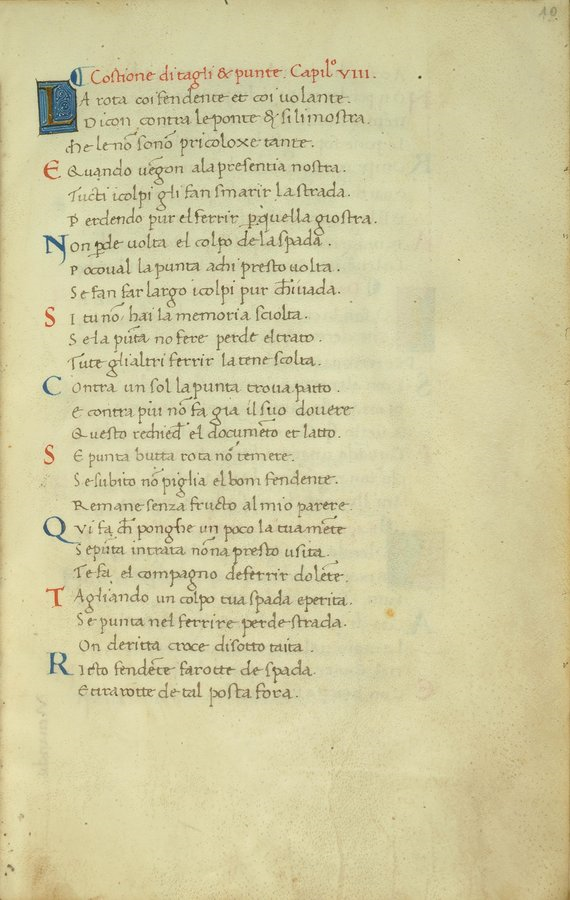 10
¶ Costione di tagli & punte. Capil⁰ VIII.
LA rota coi fendente et coi volante.
Dicon contra le ponte & si li mostra.
Che le nõ sonõ pricoloxe tante.
E Quando uegon a la presentia nostra.
Tucti i colpi gli fan smarir la strada.
Perdendo pur el ferrir p̱ quella giostra.
Non p̱de uolta el colpo de la spada.
Poco ual la punta a chi presto uolta.
Se fan far largo i colpi pur ch̃ i uada.
SI tu nõ hai la memoria sciolta.
Se la pũta no fere perde el trato.
Tute gli altri ferrir la tene scolta.
COntra un sol la punta troua patto.
E contra piu nõ fa gia il suo douere
Questo rechied̃ el documẽto et latto.
SE punta butta rota nõ temere.
Se subito nõ piglia el bom fendente.
Remane senza fructo al mio parere.
QVi fa ch̃ ponghe un poco la tua mẽte
Se pũta intrata nõ na presto usita.
Te fa el compagno de ferrir dolẽte.
TAgliando un colpo tua spada e perita.
Se punta nel ferrire perde strada.
On deritta croce di sotto taita.
RIesto fendẽte fa rotte de spada.
E tira rotte de tal posta fora.